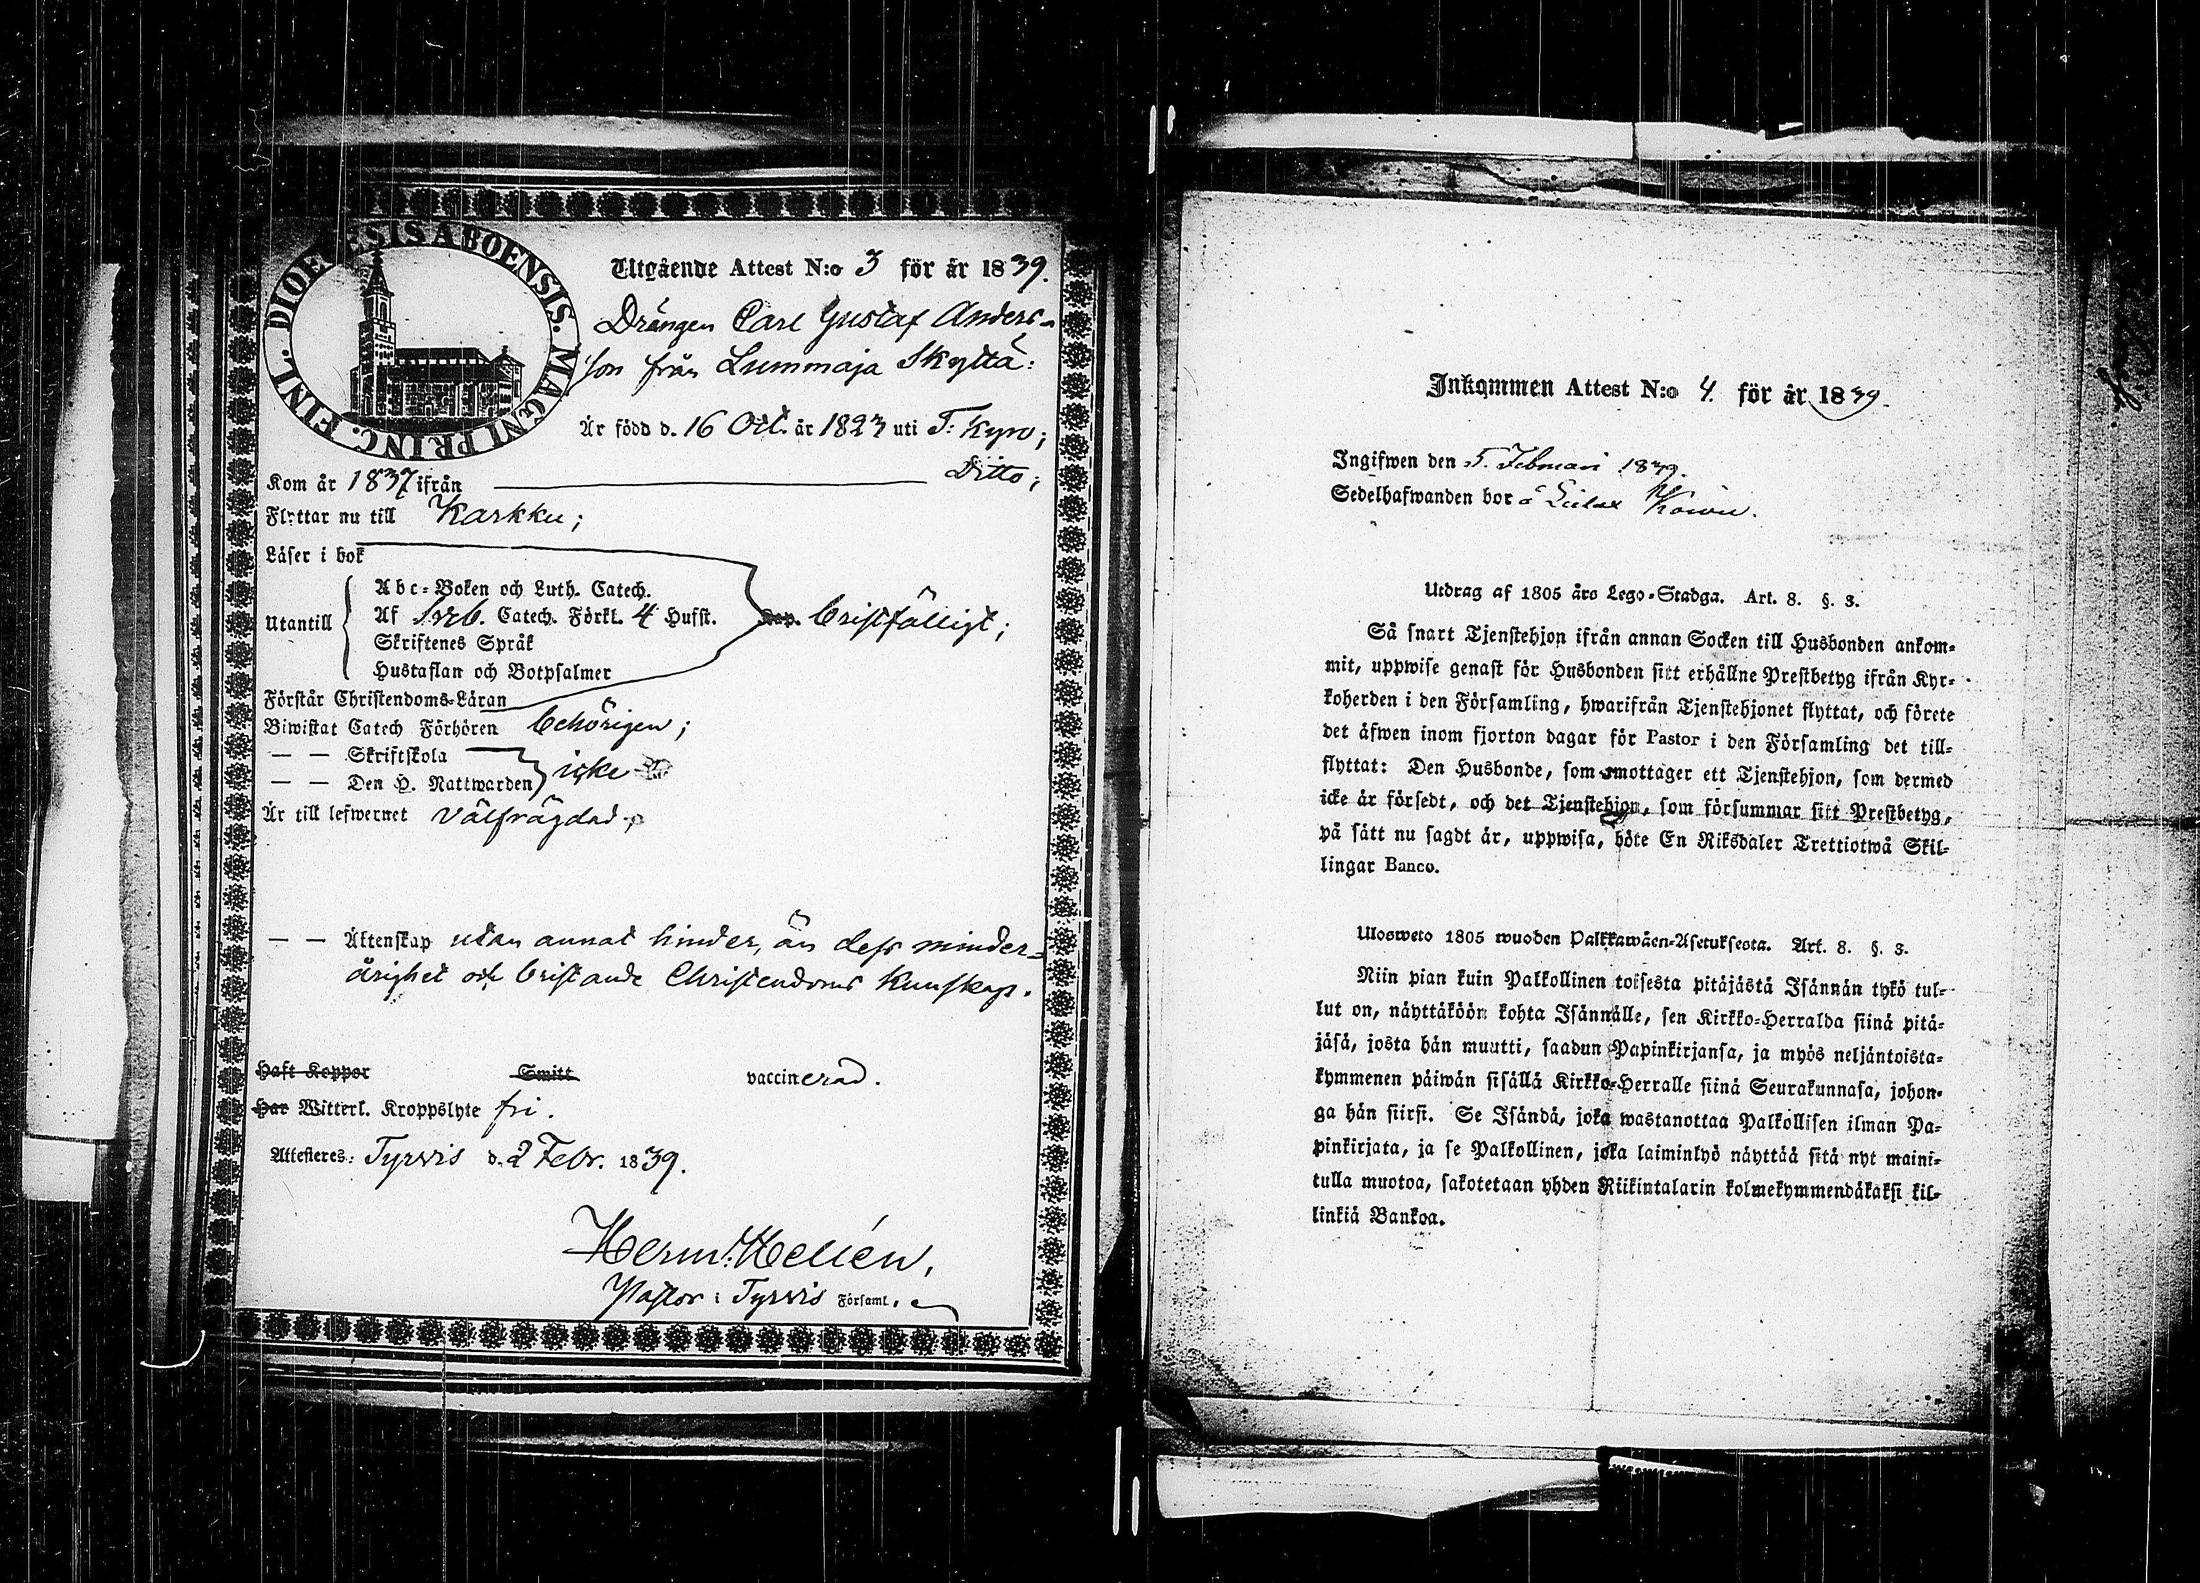 DIOECESIS ABOENSIS. MAGNI PRINC. FINL.
Utgående Attest N:o 3 för år 1839.
Drängen Carl Gustaf Anders-
son från Lummaja Skyttä:
Är född d. 16 Oct. år 1823 uti T: Kyro;
Kom år 1837 ifrån Ditto;
Flyttar nu till Karkku;
Läser i bok
Utantill
Abc-Boken och Luth. Catech.
Af Sveb. Catech. Förkl. 4 Hufst.
Skriftenes Språk
Hustaflan och Botpsalmer
bristfälligt;
Förstår Christendoms-Läran
Biwistat Catech Förhören behörigen;
— — Skriftskola
— — Den H. Nattwarden
icke
Är till lefwernet välfrägdad;
— — Äktenskap utan annat hinder, än dess minder-
årighet och bristande Christendoms Kunskap.
Haft Koppor Smitt vaccinerad.
Har Witterl. Kroppslyte fri.
Attesteres: Tyrvis d. 2 Febr. 1839.
Herm. Hellén,
Pastor i Tyrvis Församl.
Inkommen Attest N:o 4. för år 1839.
Ingifwen den 5. Februari 1839.
Sedelhafwanden bor å
Utdrag af 1805 års Lego-Stadga. Art. 8. §. 3.
Så snart Tjenstehjon ifrån annan Socken till Husbonden ankom-
mit, uppwise genast för Husbonden sitt erhållne Prestbetyg ifrån Kyr-
koherden i den Församling, hwarifrån Tjenstehjonet flyttat, och förete
det äfwen inom fjorton dagar för Pastor i den Församling det till-
flyttat: Den Husbonde, som emottager ett Tjenstehjon, som dermed
icke är försedt, och det Tjenstehjon, som försummar sitt Prestbetyg,
på sätt nu sagdt är, uppwisa, böte En Riksdaler Trettiotwå Skil-
lingar Banco.
Ulosweto 1805 wuoden Palkkawäen-Asetuksesta. Art. 8. §. 3.
Niin pian kuin Palkollinen toisesta pitäjästä Isännän tykö tul-
lut on, näyttäköön kohta Isännälle, sen Kirkko-Herralda siinä pitä-
jäsä, josta hän muutti, saadun Papinkirjansa, ja myös neljäntoista-
kymmenen päiwän sisällä Kirkko-Herralle siinä Seurakunnasa, johon-
ga hän siirsi. Se Isändä, joka wastanottaa Palkollisen ilman Pa-
pinkirjata, ja se Palkollinen, joka laiminlyö näyttää sitä nyt maini-
tulla muotoa, sakotetaan yhden Riikintalarin kolmekymmendäkaksi kil-
linkiä Bankoa.